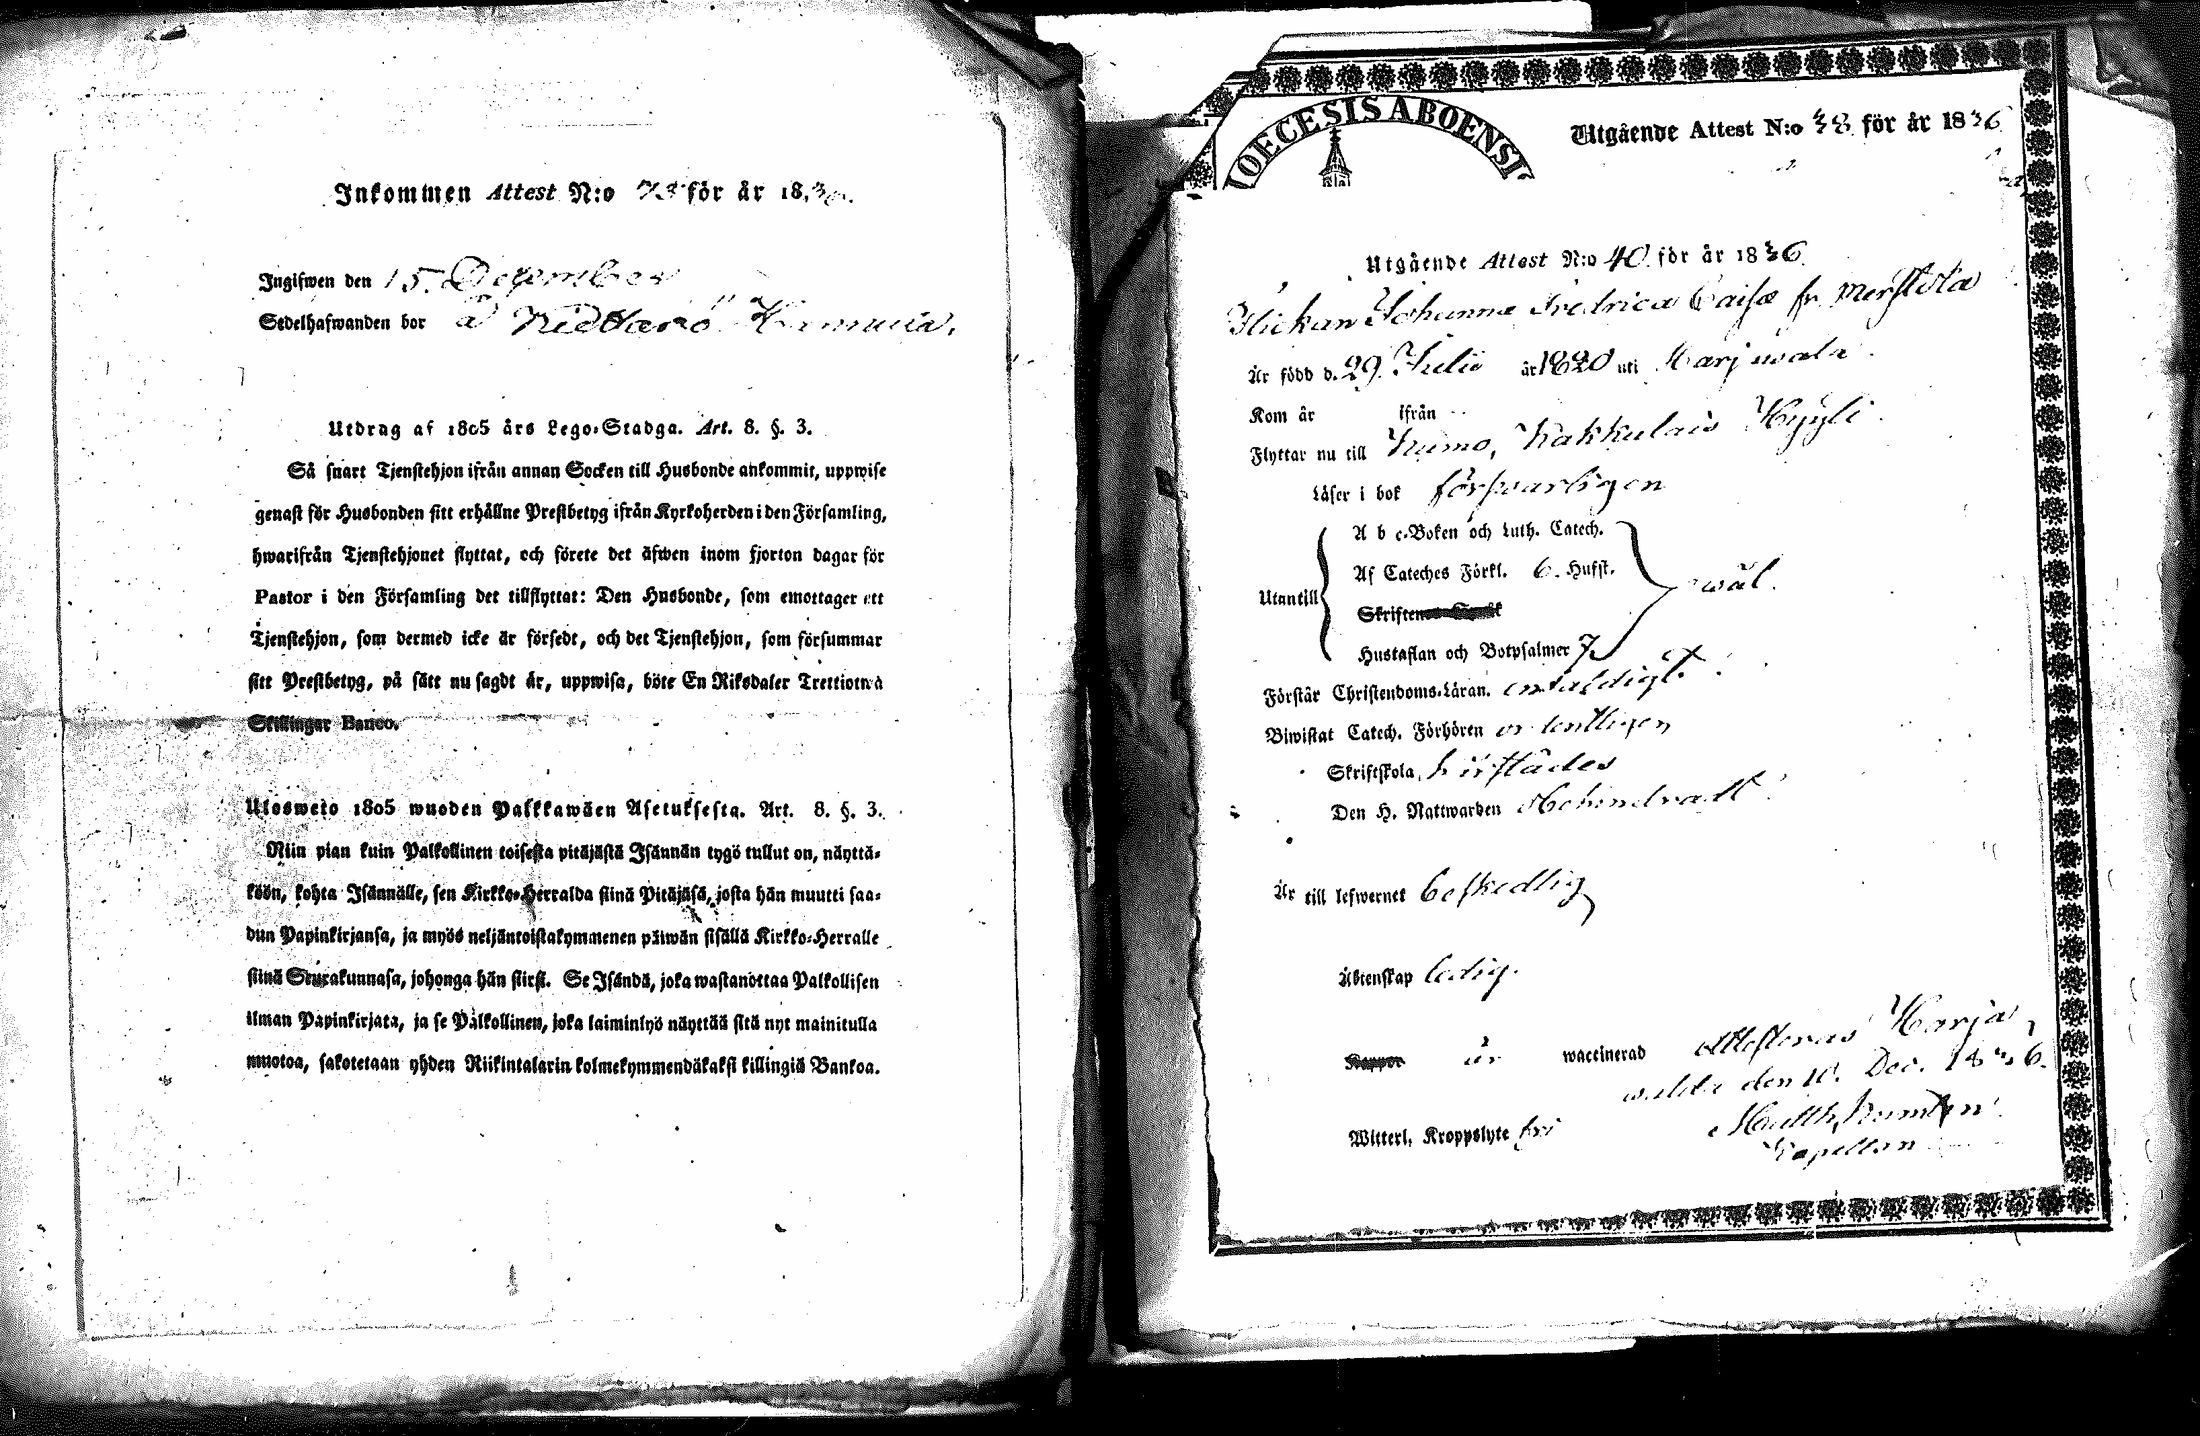 Inkommen Attest N:o 73 för år 1836.
Ingifwen den 15. December
Sedelhafwanden bor å
Utdrag af 1805 års Lego-Stadga. Art. 8. §. 3.
Så snart Tjenstehjon ifrån annan Socken till Husbonde ankommit, uppwise
genast för Husbonden sitt erhållne Prestbetyg ifrån Kyrkoherden i den Församling,
hwarifrån Tjenstehjonet flyttat, och förete det äfwen inom fjorton dagar för
Pastor i den Församling det tillflyttat: Den Husbonde, som emottager ett
Tjenstehjon, som dermed icke är försedt, och det Tjenstehjon, som försummar
sitt Prestbetyg, på sätt nu sagdt är, uppwisa, böte En Riksdaler Trettiotwå
Skillingar Banco.
Ulosweto 1805 wuoden Palkkawäen Asetuksesta. Art. 8. §. 3.
Niin pian kuin Palkollinen toisesta pitäjästä Isännän tygö tullut on, näyttä-
köön, kohta Isännälle, sen Kirkko-Herralda siinä Pitäjäsä, josta hän muutti saa-
dun Papinkirjansa, ja myös neljäntoistakymmenen päiwän sisällä Kirkko-Herralle
siinä Seurakunnasa, johonga hän siirsi. Se Isändä, joka wastanottaa Palkollisen
ilman Papinkirjata, ja se Palkollinen, joka laiminlyö näyttää sitä nyt mainitulla
muotoa, sakotetaan yhden Riikintalarin kolmekymmendäkaksi killingiä Bankoa.
DIOECESIS ABOENSI
Utgående Attest N:o 38 för år 1836
Utgående Attest N:o 40 för år 1836.
Flickan Johanna Fredrica Caisa fr. Merstola
Är född d. 29 Julii år 1820 uti Harjawala.
Kom år ifrån
Flyttar nu till Kumo, Kakkulais Hyyli.
Läser i bok förswarligen
A b c-Boken och Luth. Catech.
Af Cateches Förkl. 6. Hufst.
Utantill wäl.
Skriftenes Språk
Hustaflan och Botpsalmer 7
Förstår Christendoms-Läran. enfaldigt.
Biwistat Catech. Förhören ordentligen
Skriftskola,
Den H. Nattwarden obehindradt.
Är till lefwernet beskedlig
Äktenskap ledig.
Koppor är waccinerad Attesteras Harja
walda den 10. Dec. 1836.
Witterl. Kroppslyte fri
Kapellan